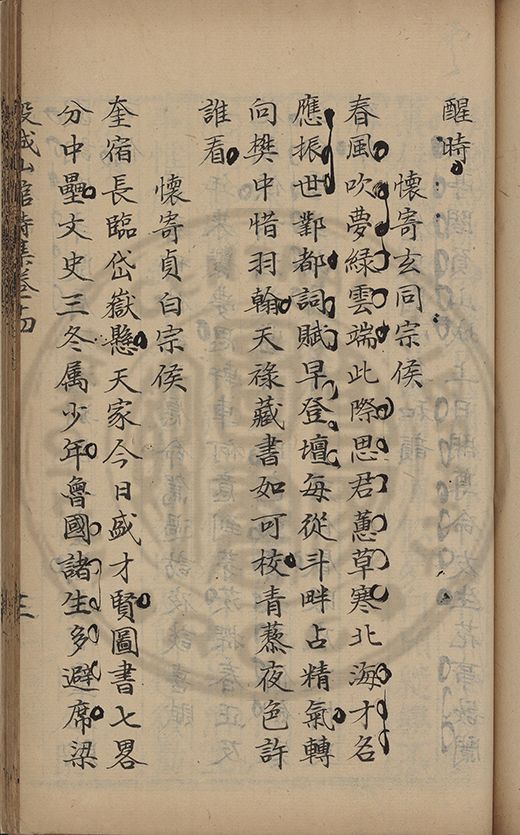 醒時
懷寄玄同宗侯
春風吹夢綠雲端此際思君蕙草寒北海才名
應振世鄴都詞賦早登壇每從斗畔占精氣轉
向樊中惜羽翰天祿藏書如可校青藜夜色許
誰看
懷寄貞白宗侯
奎宿長臨岱嶽懸天家今日盛才賢圖書七畧
分中壘文史三冬属少年魯國諸生多避席梁
穀城山館詩集卷十四
三